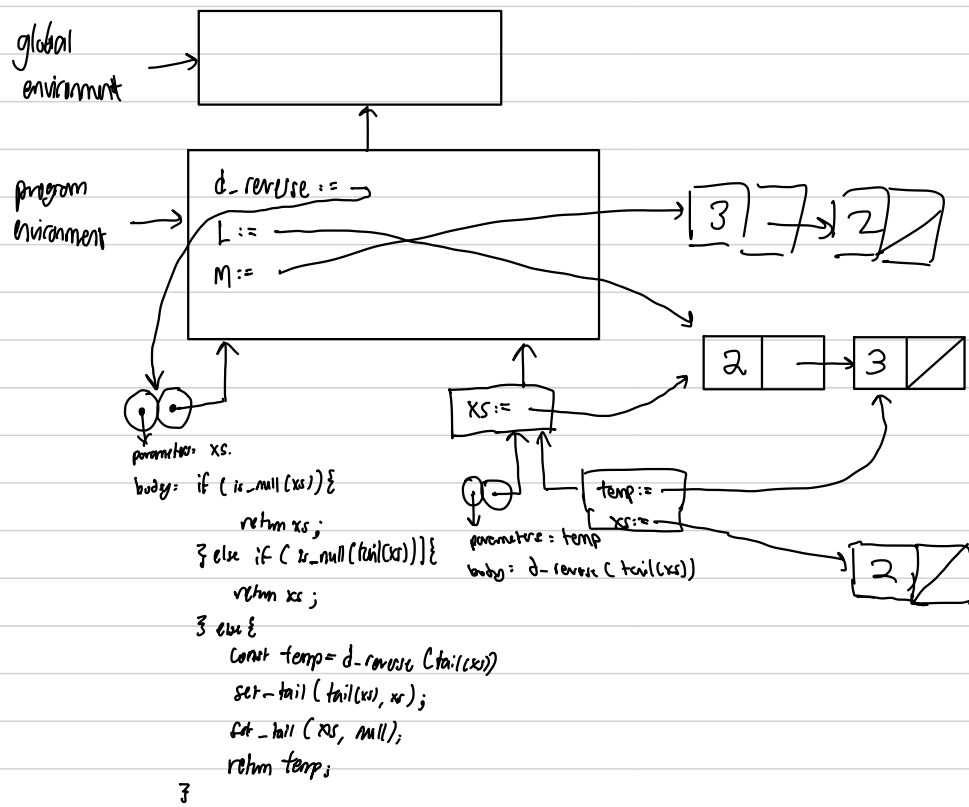 global
environment
program
environment
d_reverse :=
L :=
M :=
3
2
2
3
xs :=
parameters: xs.
body: if (is_null(xs)){
return xs;
} else if (is_null(tail(xs))){
return xs;
} else {
const temp = d_reverse (tail(xs))
set_tail (tail(xs), xs);
set_tail (xs, null);
return temp;
}
temp :=
xs :=
parameters = temp
body: d_reverse (tail(xs))
2